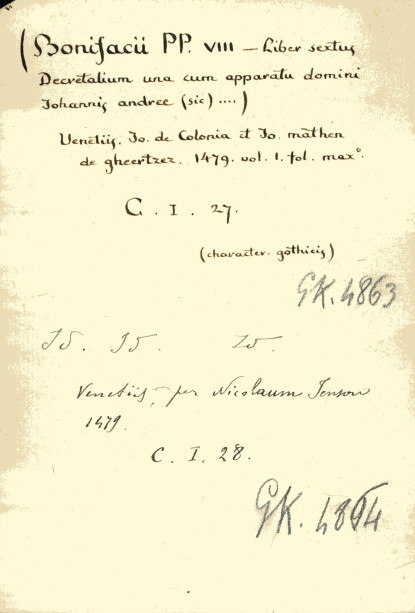 (Bonifacii PP. VIII – Liber sextus
Decretalium una cum apparatu domini
Johannis andree (sic) ....)
Venetiis. Jo. de Colonia et Jo. mathen
de gheertzez. 1479. vol. 1. fol. max°.
C. I. 27.
(character. gothicis)
GK. 4863
Id. Id. Id.
Venetiis, per Nicolaum Jenson
1479.
C. I. 28.
GK. 4864